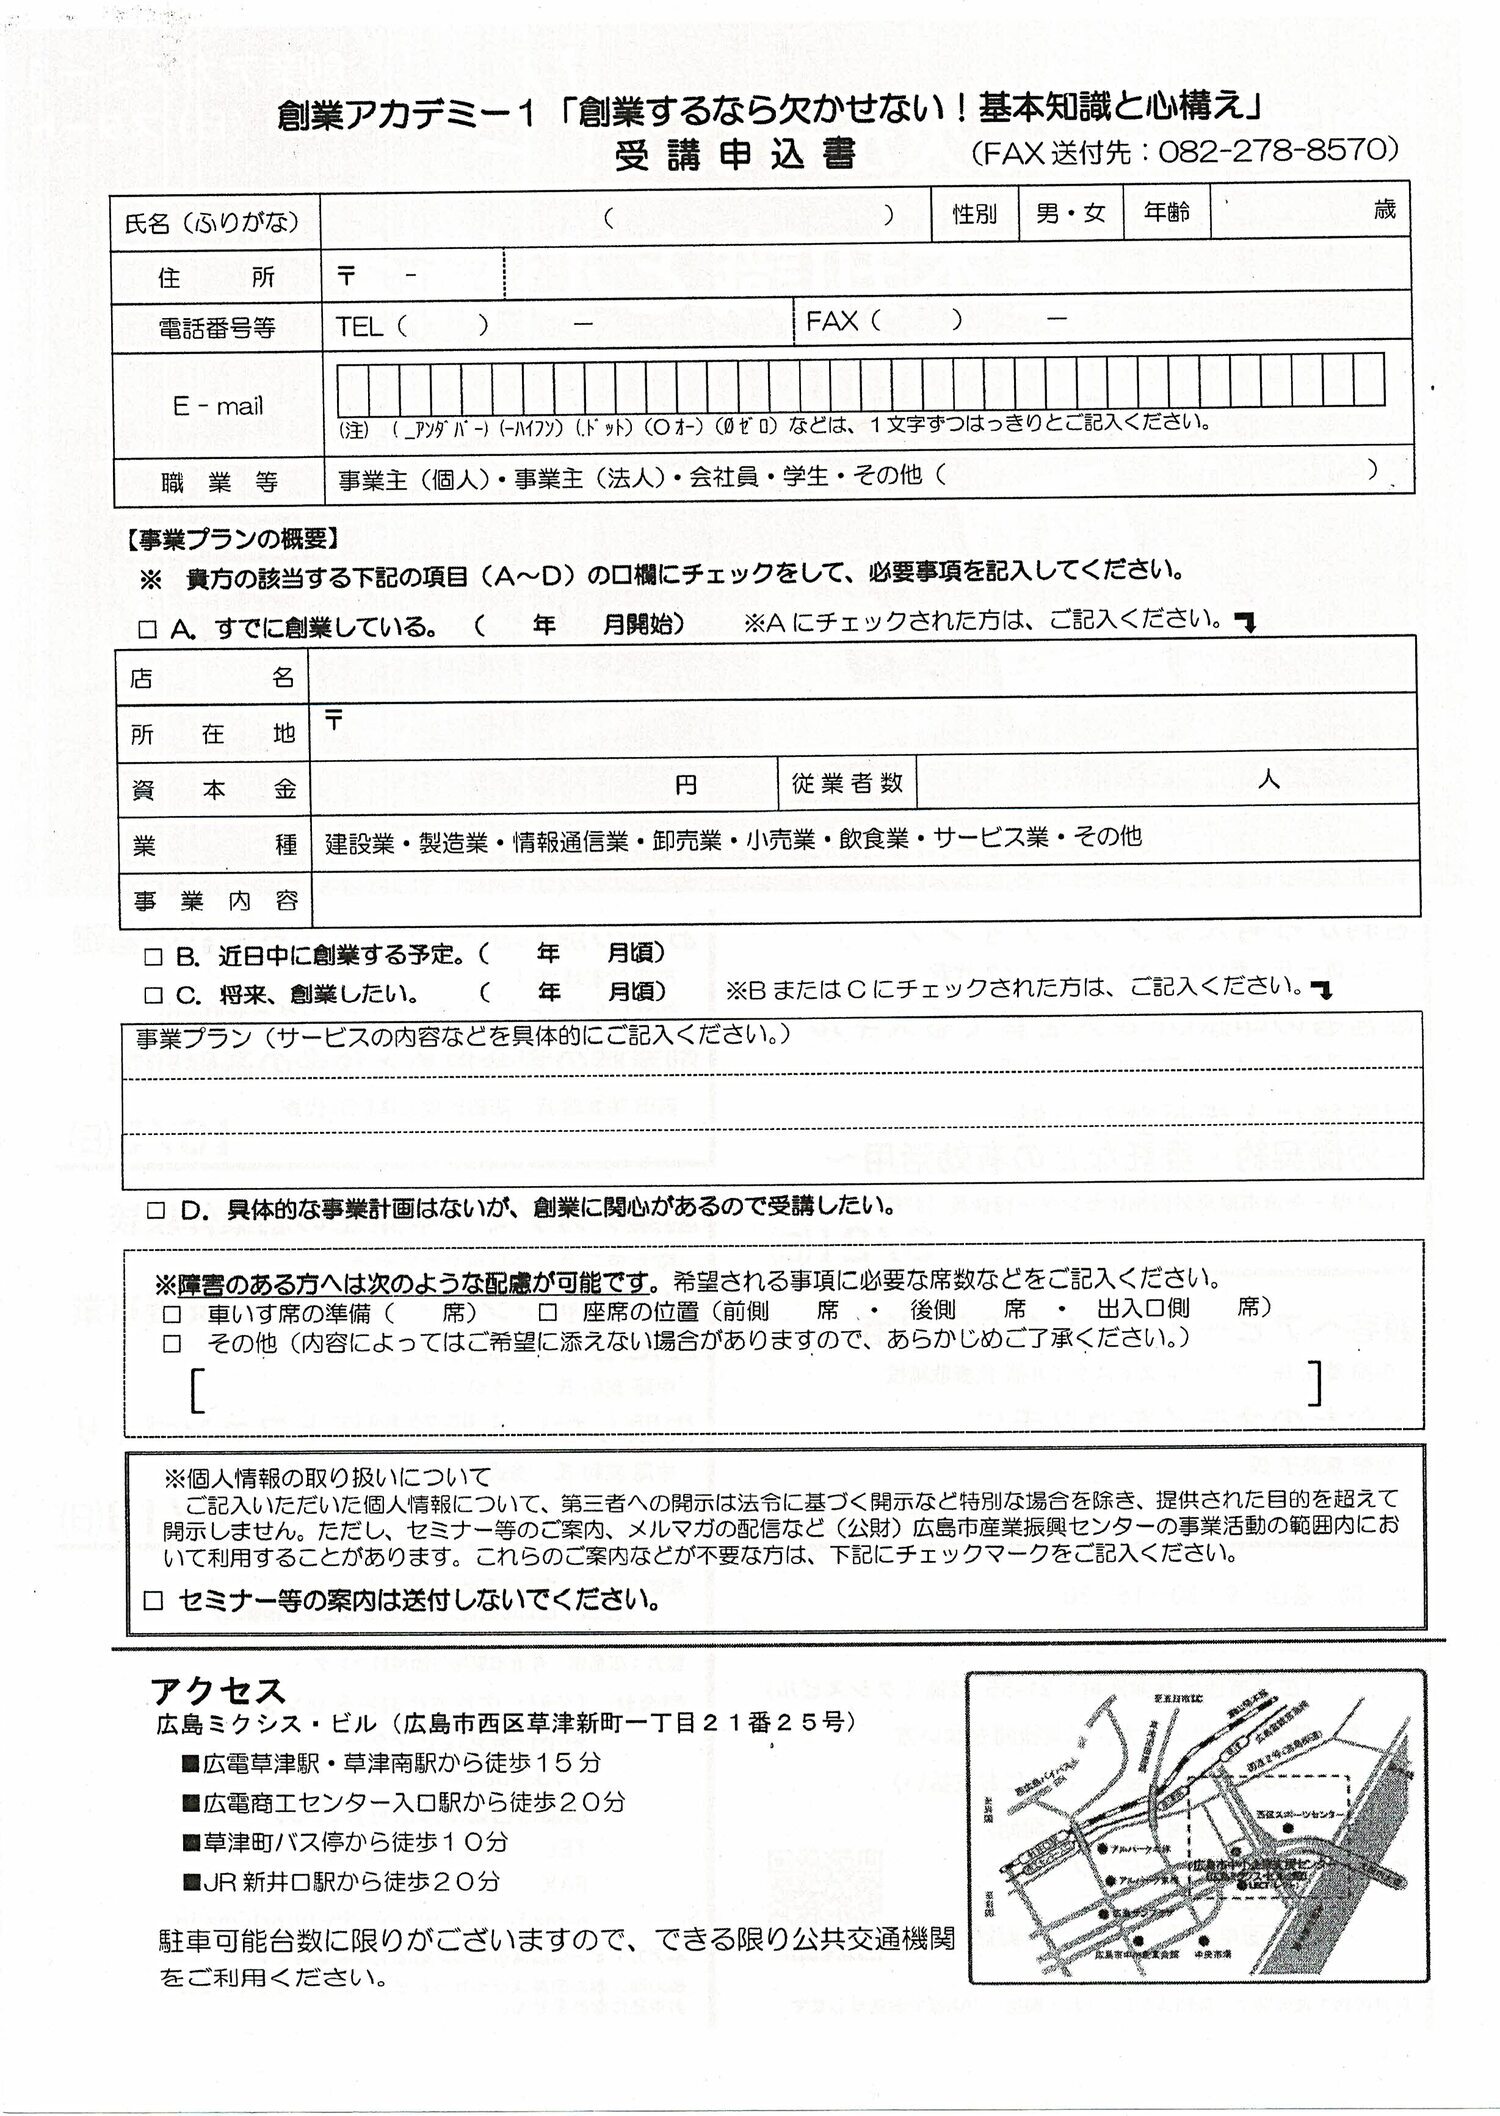 創業アカデミー１「創業するなら欠かせない！基本知識と心構え」
受講申込書 （FAX 送付先：082-278-8570）
氏名（ふりがな） （ ） 性別 男・女 年齢 歳
住 所 〒 -
電話番号等 TEL（ ） － FAX（ ） －
E - mail
（注）（ _ｱﾝﾀﾞﾊﾞｰ）（－ﾊｲﾌﾝ）（.ﾄﾞｯﾄ）（O ｵｰ）（0 ｾﾞﾛ）などは、１文字ずつはっきりとご記入ください。
職 業 等 事業主（個人）・事業主（法人）・会社員・学生・その他（ ）
【事業プランの概要】
※ 貴方の該当する下記の項目（A～D）の口欄にチェックをして、必要事項を記入してください。
□ A．すでに創業している。（ 年 月開始） ※A にチェックされた方は、ご記入ください。
店 名
所 在 地 〒
資 本 金 円 従業者数 人
業 種 建設業・製造業・情報通信業・卸売業・小売業・飲食業・サービス業・その他
事 業 内 容
□ B．近日中に創業する予定。（ 年 月頃）
□ C．将来、創業したい。 （ 年 月頃） ※B または C にチェックされた方は、ご記入ください。
事業プラン（サービスの内容などを具体的にご記入ください。）
□ D．具体的な事業計画はないが、創業に関心があるので受講したい。
※障害のある方へは次のような配慮が可能です。希望される事項に必要な席数などをご記入ください。
□ 車いす席の準備（ 席） □ 座席の位置（前側 席 ・ 後側 席 ・ 出入口側 席）
□ その他（内容によってはご希望に添えない場合がありますので、あらかじめご了承ください。）
[ ]
※個人情報の取り扱いについて
ご記入いただいた個人情報について、第三者への開示は法令に基づく開示など特別な場合を除き、提供された目的を超えて
開示しません。ただし、セミナー等のご案内、メルマガの配信など（公財）広島市産業振興センターの事業活動の範囲内にお
いて利用することがあります。これらのご案内などが不要な方は、下記にチェックマークをご記入ください。
□ セミナー等の案内は送付しないでください。
アクセス
広島ミクシス・ビル（広島市西区草津新町一丁目２１番２５号）
■広電草津駅・草津南駅から徒歩１５分
■広電商工センター入口駅から徒歩２０分
■草津町バス停から徒歩１０分
■JR 新井口駅から徒歩２０分
駐車可能台数に限りがございますので、できる限り公共交通機関
をご利用ください。
西区スポーツセンター
中央市場